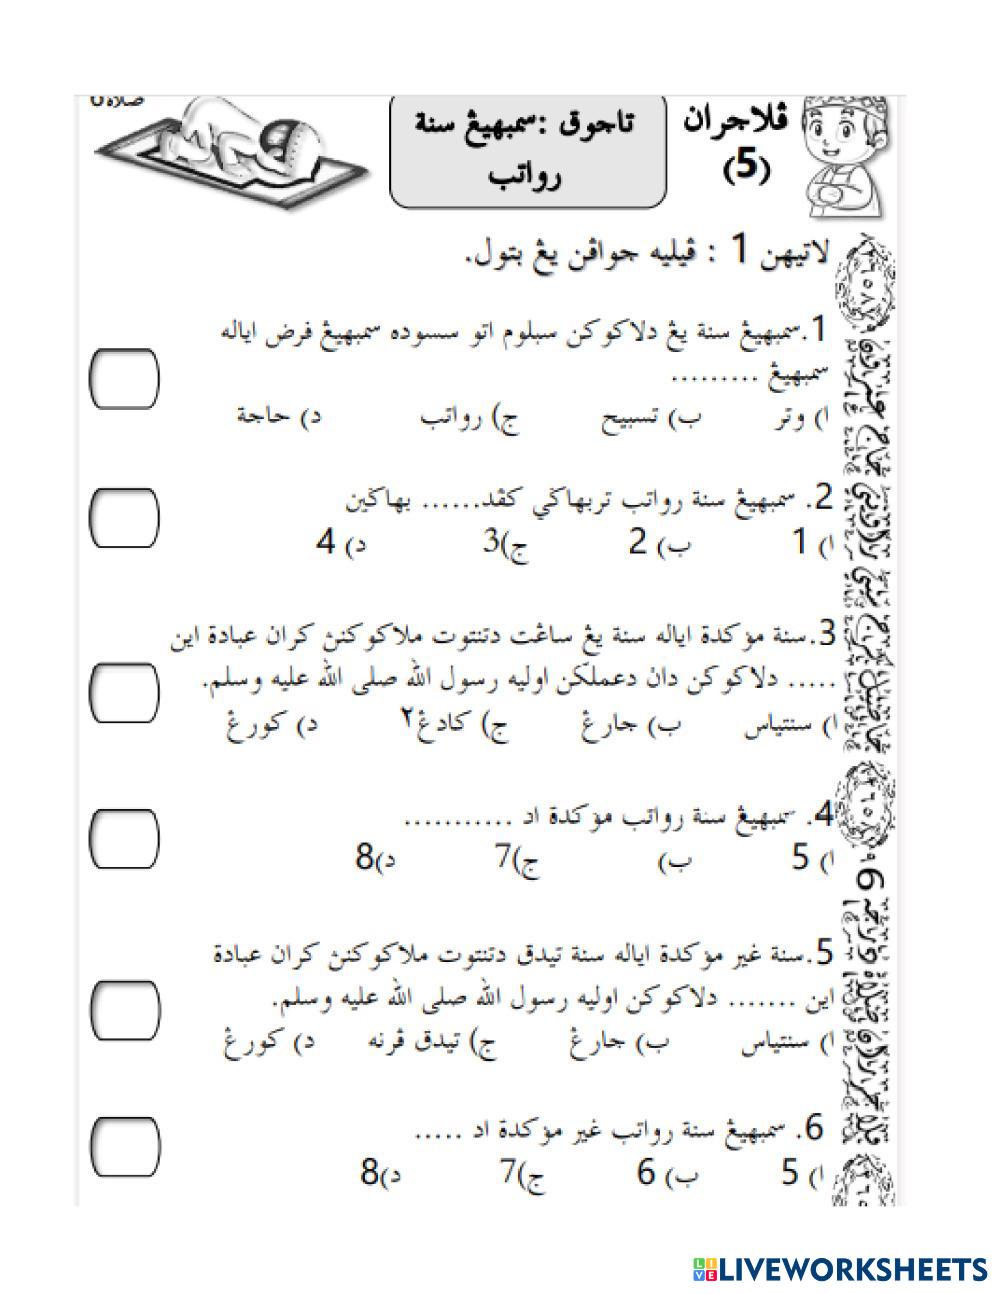 صلاة 6
ڤلاجران
(5)
تاجوق :سمبهيڠ سنة
رواتب
لاتيهن 1 : ڤيليه جواڤن يڠ بتول.
1.سمبهيڠ سنة يڠ دلاكوكن سبلوم اتو سسوده سمبهيڠ فرض اياله
سمبهيڠ .........
ا) وتر ب) تسبيح ج) رواتب د) حاجة
2. سمبهيڠ سنة رواتب تربهاݢي كڤد...... بهاݢين
ا) 1 ب) 2 ج)3 د) 4
3.سنة مؤكدة اياله سنة يڠ ساڠت دتنتوت ملاكوكنڽ كران عبادة اين
..... دلاكوكن دان دعملكن اوليه رسول الله صلى الله عليه وسلم.
ا) سنتياس ب) جارڠ ج) كادڠ٢ د) كورڠ
4. سمبهيڠ سنة رواتب مؤكدة اد ...........
ا) 5 ب) ج)7 د)8
5.سنة غير مؤكدة اياله سنة تيدق دتنتوت ملاكوكنڽ كران عبادة
اين ....... دلاكوكن اوليه رسول الله صلى الله عليه وسلم.
ا) سنتياس ب) جارڠ ج) تيدق ڤرنه د) كورڠ
6. سمبهيڠ سنة رواتب غير مؤكدة اد .....
ا) 5 ب) 6 ج)7 د)8
LIVEWORKSHEETS